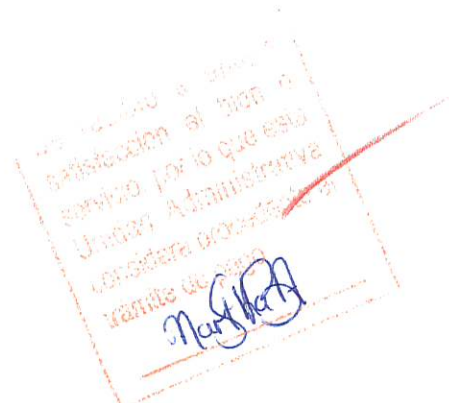 satisfacción el bien o
servizo por lo que esta
Unidad Administrativa
considera procedente el
tramite de pago